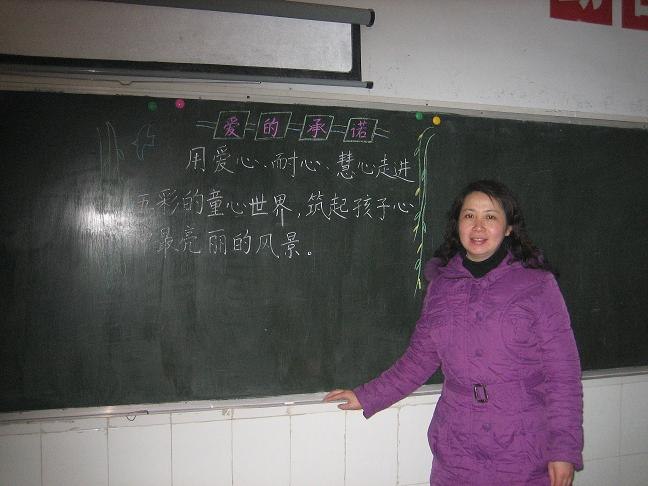 爱的承诺
用爱心、耐心、慧心走进
五彩的童心世界，筑起孩子心
最亮丽的风景。